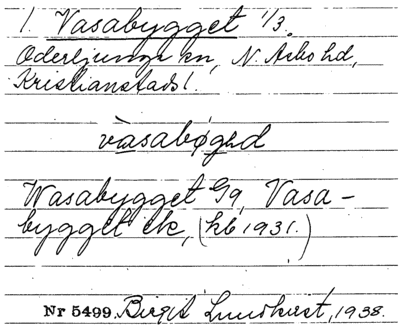 1. Vasabygget 1/3.
Oderljunga sn, N. Åsbo hd,
Kristianstads l.
vàsabøgəd
Wasabygget Gq, Vasa-
bygget ek, (kb 1931.)
Nr 5499. Birgit Lundkvist, 1938.